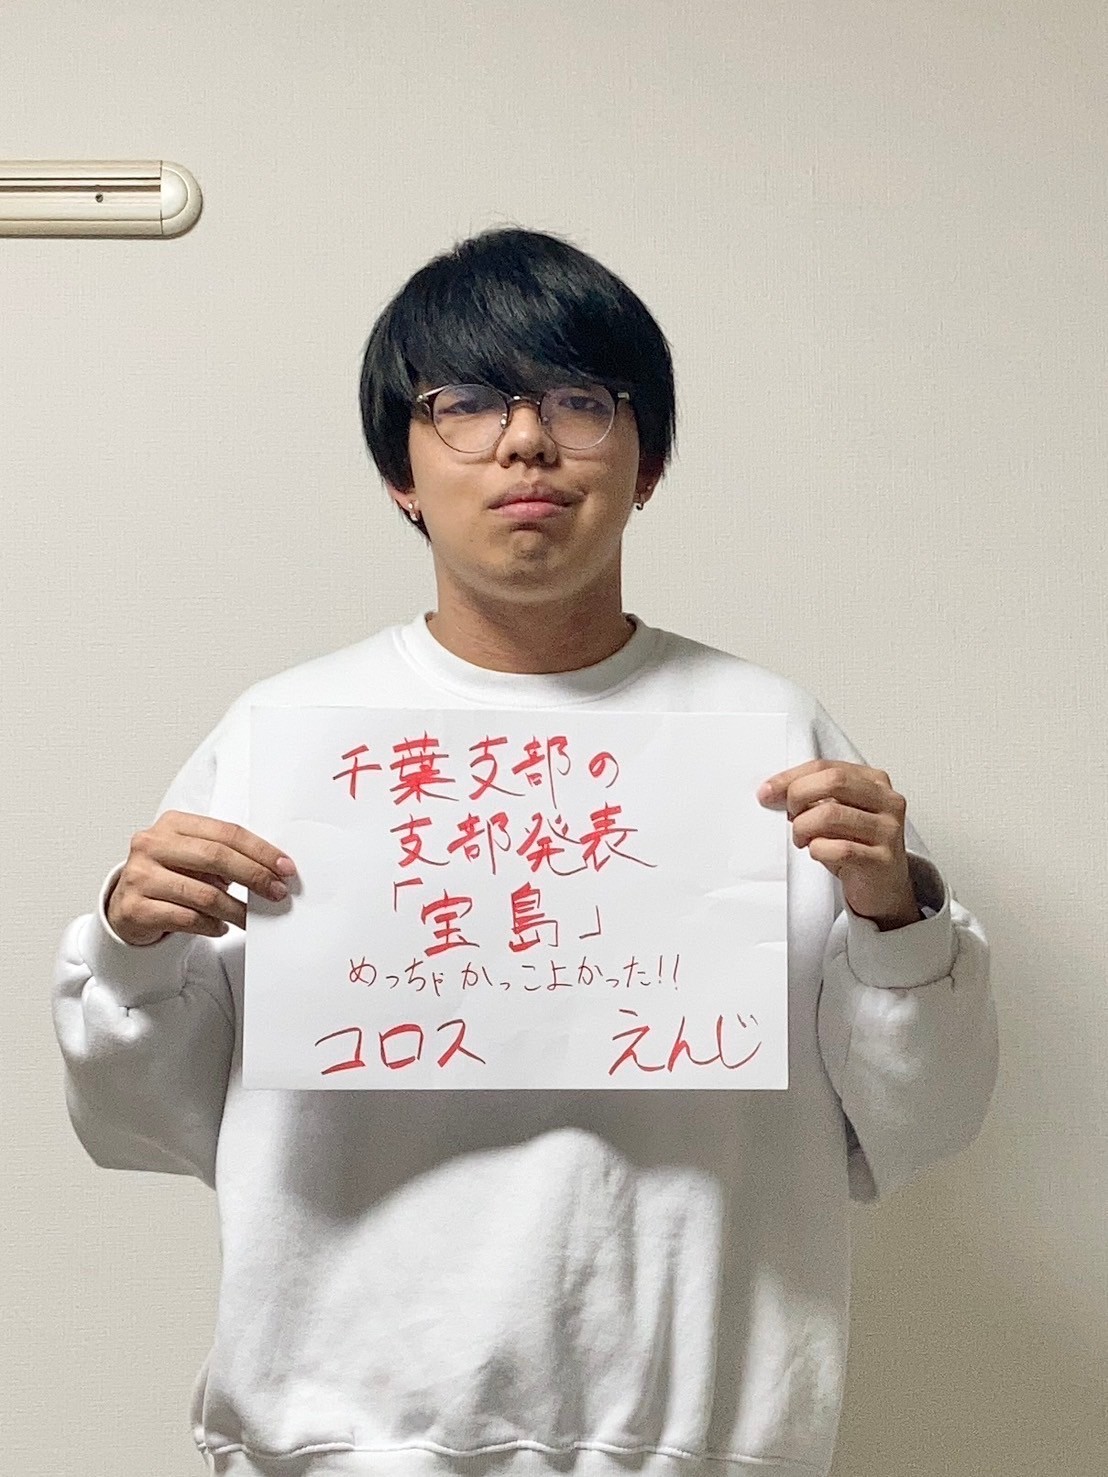 千葉支部の
支部発表
「宝島」
めっちゃかっこよかった!!
コロス えんじ